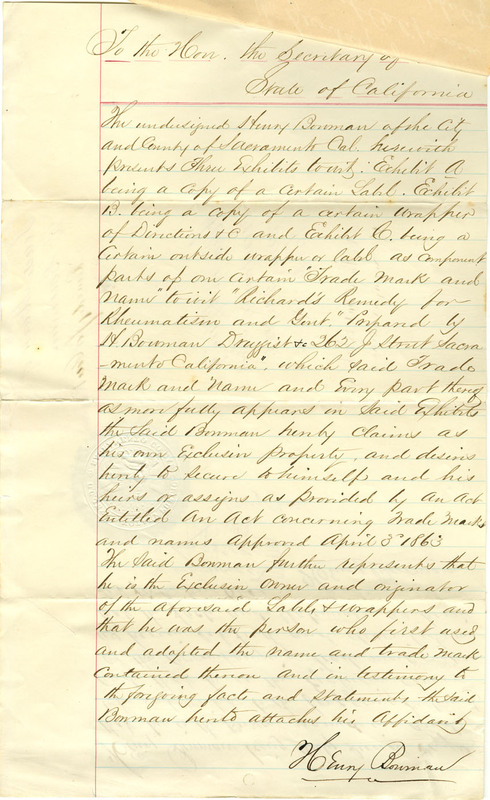 To the Hon. the Secretary of
State of California
The undersigned Henry Bowman of the City
and County of Sacramento Cal. herewith
presents Three Exhibits to wit: Exhibit A
being a Copy of a Certain Labl. Exhibit
B. being a copy of a certain wrapper
of Directions &c and Exhibit C. being a
Certain outside wrapper or labl as component
parts of one Certain "Trade Mark and
Name" to wit "Richard's Remedy for
Rheumatism and Gout." Prepared by
H Bowman Druggist &c 262 J Street Sacra
-mento California". which said Trade
Mark and Name and Every part thereof
as more fully appears in Said Exhibits
the Said Bowman hereby Claims as
his own Exclusive Property. and desires
hereby to secure to himself and his
heirs or assigns as provided by An Act
Entitled An Act concerning Trade Marks
and names Approved April 3d 1863
The Said Bowman further represents that
he is the Exclusive Owner and originator
of the aforesaid Labels & wrappers and
that he was the person who first used
and adopted the name and trade mark
Contained thereon and in testimony to
the foregoing facts and Statements the Said
Bowman hereto attaches his Affidavit
Henry Bowman